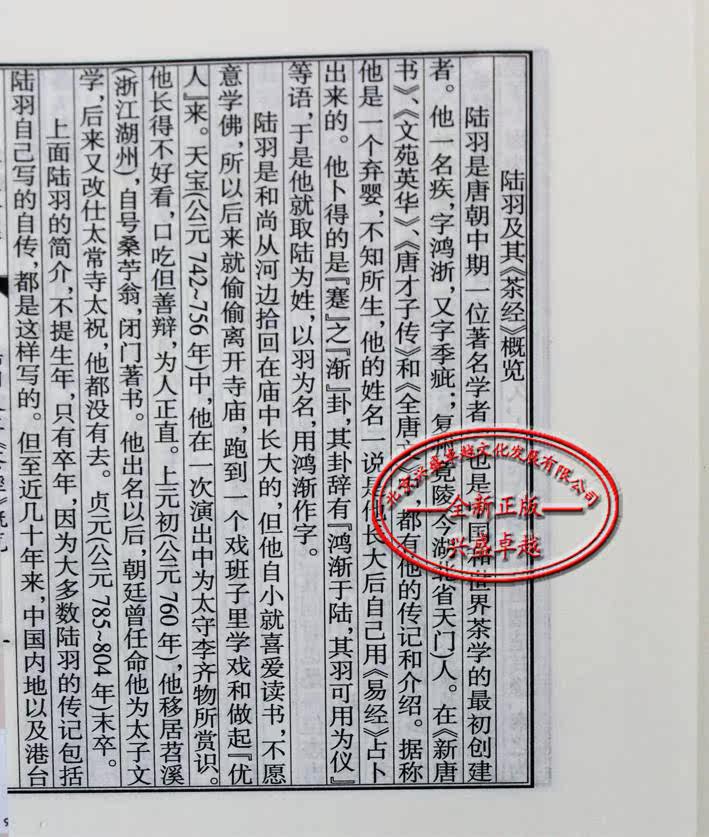 陆羽及其《茶经》概览
陆羽是唐朝中期一位著名学者 也是 国和世界茶学的最初创建
者。他一名疾,字鸿浙,又字季疵;复州竟陵(今湖北省天门)人。在《新唐
书》、《文苑英华》、《唐才子传》和《全唐文》 ,都有他的传记和介绍。据称
他是一个弃婴,不知所生,他的姓名一说是他长大后自己用《易经》占卜
出来的。他卜得的是『蹇』之『渐』卦,其卦辞有『鸿渐于陆,其羽可用为仪』
等语,于是他就取陆为姓,以羽为名,用鸿渐作字。
陆羽是和尚从河边拾回在庙中长大的,但他自小就喜爱读书,不愿
意学佛,所以后来就偷偷离开寺庙,跑到一个戏班子里学戏和做起『优
人』来。天宝(公元 742~756 年)中,他在一次演出中为太守李齐物所赏识。
他长得不好看,口吃但善辩,为人正直。上元初(公元 760 年),他移居苕溪
(浙江湖州),自号桑苧翁,闭门著书。他出名以后,朝廷曾任命他为太子文
学,后来又改仕太常寺太祝,他都没有去。贞元(公元 785~804 年)末卒。
上面陆羽的简介,不提生年,只有卒年,因为大多数陆羽的传记包括
陆羽自己写的自传,都是这样写的。但至近几十年来,中国内地以及港台
北京兴盛卓越文化发展有限公司
全新正版
兴盛卓越